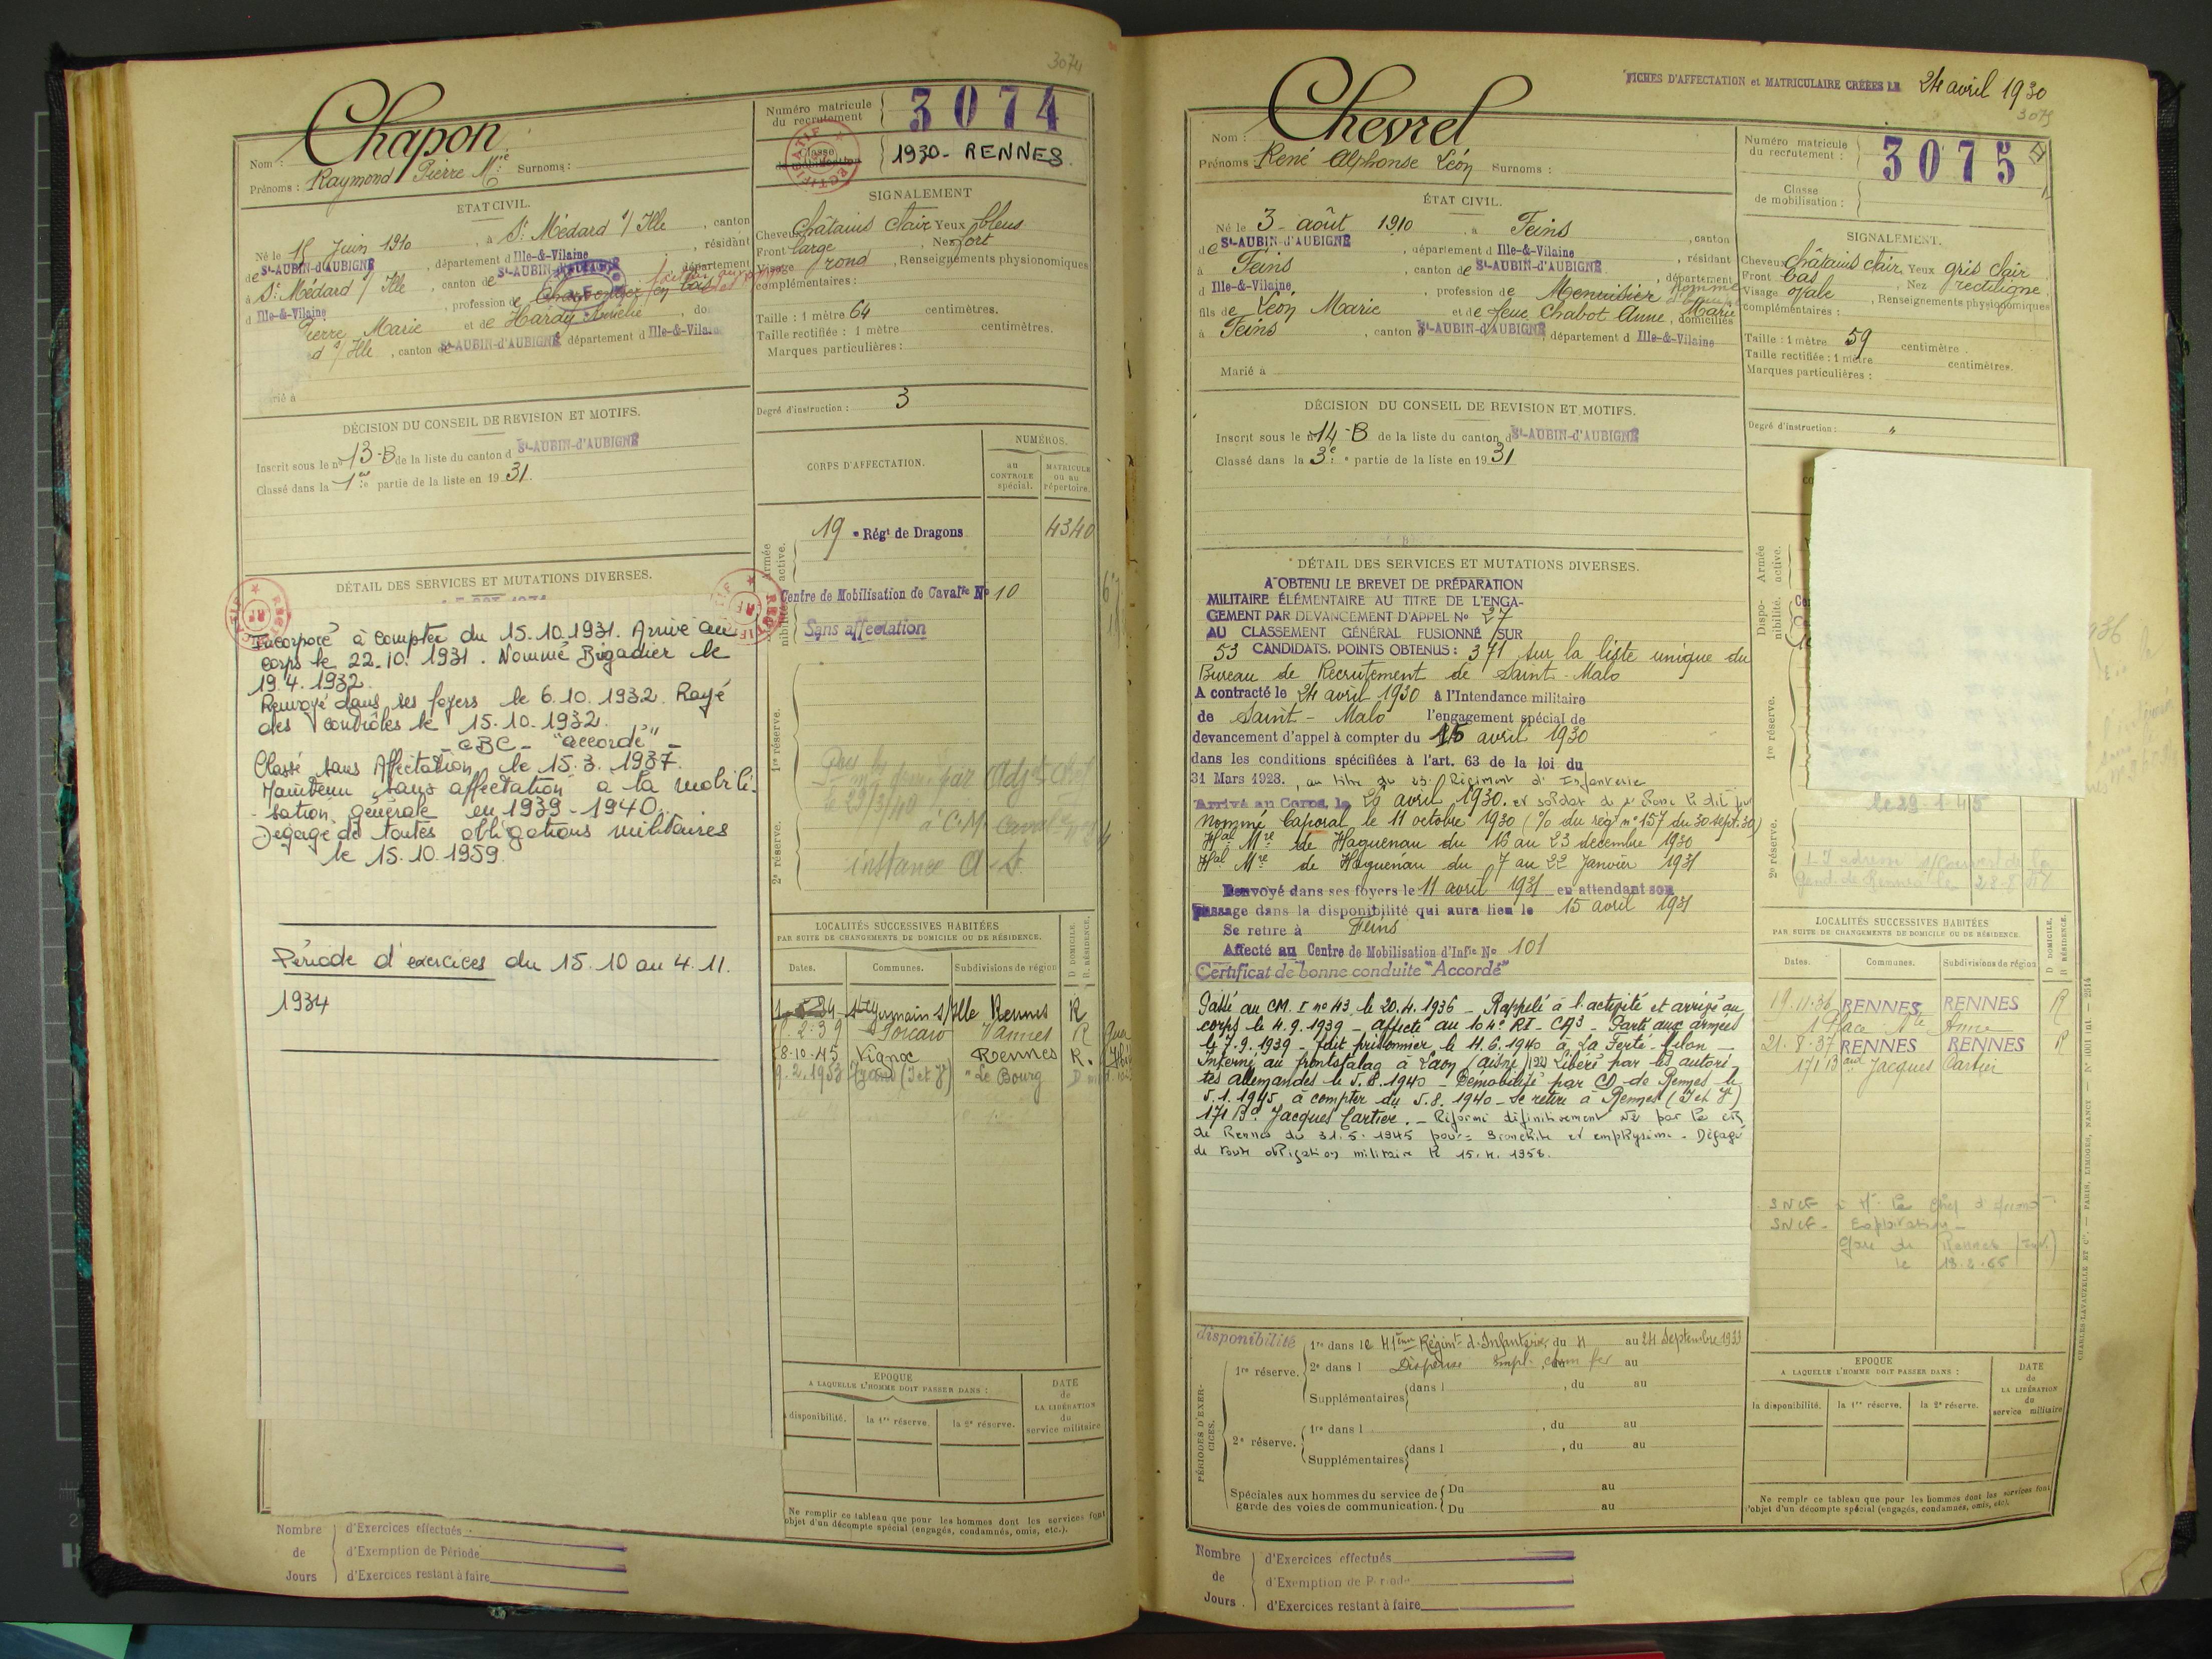 3074
Chapon
Nom :
Prénoms : Raymond Pierre Mie Surnoms :
Numéro matricule du recrutement 3074
Classe 1930 - RENNES
ETAT CIVIL.
Né le 15 Juin 1910, à St Médard s/ Ille, canton
de St-AUBIN-d'AUBIGNÉ, département d Ille-&-Vilaine, résidant
à St Médard s/ Ille, canton de St-AUBIN-d'AUBIGNÉ, département
d Ille-&-Vilaine, profession de
Pierre Marie et de Hardy Amélie, do
d s/ Ille, canton de St-AUBIN-d'AUBIGNÉ département d Ille-&-Vilaine
rié à
SIGNALEMENT
Cheveux châtains clair Yeux bleus
Front large Nez fort
Visage rond, Renseignements physionomiques
complémentaires :
Taille : 1 mètre 64 centimètres.
Taille rectifiée : 1 mètre centimètres.
Marques particulières :
Degré d'instruction : 3
DÉCISION DU CONSEIL DE REVISION ET MOTIFS.
Inscrit sous le no 13-B de la liste du canton d St-AUBIN-d'AUBIGNÉ
Classé dans la 1re partie de la liste en 1931.
CORPS D'AFFECTATION.
NUMÉROS.
au CONTROLE spécial.
MATRICULE ou au répertoire.
Armée active.
19e Régt de Dragons 4340
Centre de Mobilisation de Cavalie No 10
Sans affectation
1re réserve.
2e réserve.
instance
DÉTAIL DES SERVICES ET MUTATIONS DIVERSES.
Incorporé à compter du 15.10.1931. Arrivé au
corps le 22.10.1931. Nommé Brigadier le
19.4.1932.
Renvoyé dans ses foyers le 6.10.1932. Rayé
des contrôles le 15.10.1932.
- CBC - "accordé" -
Classé sans Affectation le 15.3.1937.
Maintenu sans affectation à la mobili-
-sation générale en 1939-1940.
Dégagé de toutes obligations militaires
le 15.10.1959.
Période d'exercices du 15.10 au 4.11.
1934
LOCALITÉS SUCCESSIVES HABITÉES
PAR SUITE DE CHANGEMENTS DE DOMICILE OU DE RÉSIDENCE.
D DOMICILE.
R RÉSIDENCE.
Dates. Communes. Subdivisions de région
St Germain s/Ille Rennes R
2.39 Porcaro Vannes R
8.10.45 Vignoc Rennes R.
9.2.1953 "Le Bourg D
EPOQUE
A LAQUELLE L'HOMME DOIT PASSER DANS :
DATE de LA LIBÉRATION du service militaire
disponibilité. la 1re réserve. la 2e réserve.
Ne remplir ce tableau que pour les hommes dont les services font
objet d'un décompte spécial (engagés, condamnés, omis, etc.).
Nombre de Jours
d'Exercices effectués
d'Exemption de Période
d'Exercices restant à faire
FICHES D'AFFECTATION et MATRICULAIRE CRÉÉES LE 24 avril 1930
3075
Chevrel
Nom :
Prénoms : René Alphonse Léon Surnoms :
Numéro matricule du recrutement : 3075
Classe de mobilisation :
ÉTAT CIVIL.
Né le 3 août 1910, à Feins, canton
de St-AUBIN-d'AUBIGNÉ, département d Ille-&-Vilaine, résidant
à Feins, canton de St-AUBIN-d'AUBIGNÉ, département
d Ille-&-Vilaine, profession de Menuisier
fils de Léon Marie et de feue Chabot Anne Marie, domiciliés
à Feins, canton St-AUBIN-d'AUBIGNÉ, département d Ille-&-Vilaine
Marié à
SIGNALEMENT.
Cheveux châtains clair, Yeux gris clair
Front bas, Nez rectiligne
Visage ovale, Renseignements physionomiques
complémentaires :
Taille : 1 mètre 59 centimètre.
Taille rectifiée : 1 mètre centimètres.
Marques particulières :
Degré d'instruction : "
DÉCISION DU CONSEIL DE REVISION ET MOTIFS.
Inscrit sous le no 14-B de la liste du canton d St-AUBIN-d'AUBIGNÉ
Classé dans la 3e partie de la liste en 1931
DÉTAIL DES SERVICES ET MUTATIONS DIVERSES.
A OBTENU LE BREVET DE PRÉPARATION
MILITAIRE ÉLÉMENTAIRE AU TITRE DE L'ENGA-
GEMENT PAR DEVANCEMENT D'APPEL No 27
AU CLASSEMENT GÉNÉRAL FUSIONNÉ SUR
53 CANDIDATS. POINTS OBTENUS : 371 sur la liste unique du
Bureau de Recrutement de Saint-Malo
A contracté le 24 avril 1930 à l'Intendance militaire
de Saint-Malo l'engagement spécial de
devancement d'appel à compter du 15 avril 1930
dans les conditions spécifiées à l'art. 63 de la loi du
31 Mars 1928., au titre du 23e Régiment d'Infanterie
Arrivé au Corps, le 24 avril 1930. et soldat de 2e classe le dit jour
Nommé Caporal le 11 octobre 1930 (% du rég. no 157 du 30 sept. 30)
Hal Mre de Haguenau du 16 au 23 décembre 1930
Hal Mre de Haguenau du 7 au 22 Janvier 1931
Renvoyé dans ses foyers le 11 avril 1931 en attendant son
passage dans la disponibilité qui aura lieu le 15 avril 1931
Se retire à Feins
Affecté au Centre de Mobilisation d'Infie No 101
Certificat de bonne conduite "Accordé"
Passé au CM. I no 43 le 20.4.1936 - Rappelé à l'activité et arrivé au
corps le 4.9.1939 - affecté au 104e RI - CA3 - Parti aux armées
le 7.9.1939 - fait prisonnier le 11.6.1940 à La Ferté-Milon -
Interné au frontstalag à Laon (aisne) 122 Libéré par les autori-
tés allemandes le 5.8.1940 - Démobilisé par CD de Rennes le
5.1.1945 à compter du 5.8.1940 - Se retire à Rennes (I et V)
171 Bd Jacques Cartier. - Réformé définitivement No 2 par la CR
de Rennes du 31.5.1945 pour : Bronchite et emphysème. Dégagé
de toute obligation militaire le 15.4.1958.
Dispo- nibilité.
Armée active.
1re réserve.
2e réserve.
LOCALITÉS SUCCESSIVES HABITÉES
PAR SUITE DE CHANGEMENTS DE DOMICILE OU DE RÉSIDENCE.
D DOMICILE.
R RÉSIDENCE.
Dates. Communes. Subdivisions de région
19.11.36 RENNES RENNES R
1 Place Ste Anne
21.8.37 RENNES RENNES R
171 Bard Jacques Cartier
SNCF - Exploitation -
Gare de Rennes
le 18.2.55
disponibilité
PÉRIODES D'EXERCICES.
1re réserve.
1re dans le 41ème Régimt d'Infanterie, du 4 au 24 Septembre 1933
2e dans l Dispense Empl. chem fer au
Supplémentaires dans l, du au
2e réserve.
1re dans l, du au
Supplémentaires dans l, du au
Spéciales aux hommes du service de
garde des voies de communication.
Du au
Du au
EPOQUE
A LAQUELLE L'HOMME DOIT PASSER DANS :
DATE de LA LIBÉRATION du service militaire
la disponibilité. la 1re réserve. la 2e réserve.
Ne remplir ce tableau que pour les hommes dont les services font
l'objet d'un décompte spécial (engagés, condamnés, omis, etc).
CHARLES-LAVAUZELLE ET Cie. — PARIS, LIMOGES, NANCY
Nombre de Jours
d'Exercices effectués
d'Exemption de Période
d'Exercices restant à faire